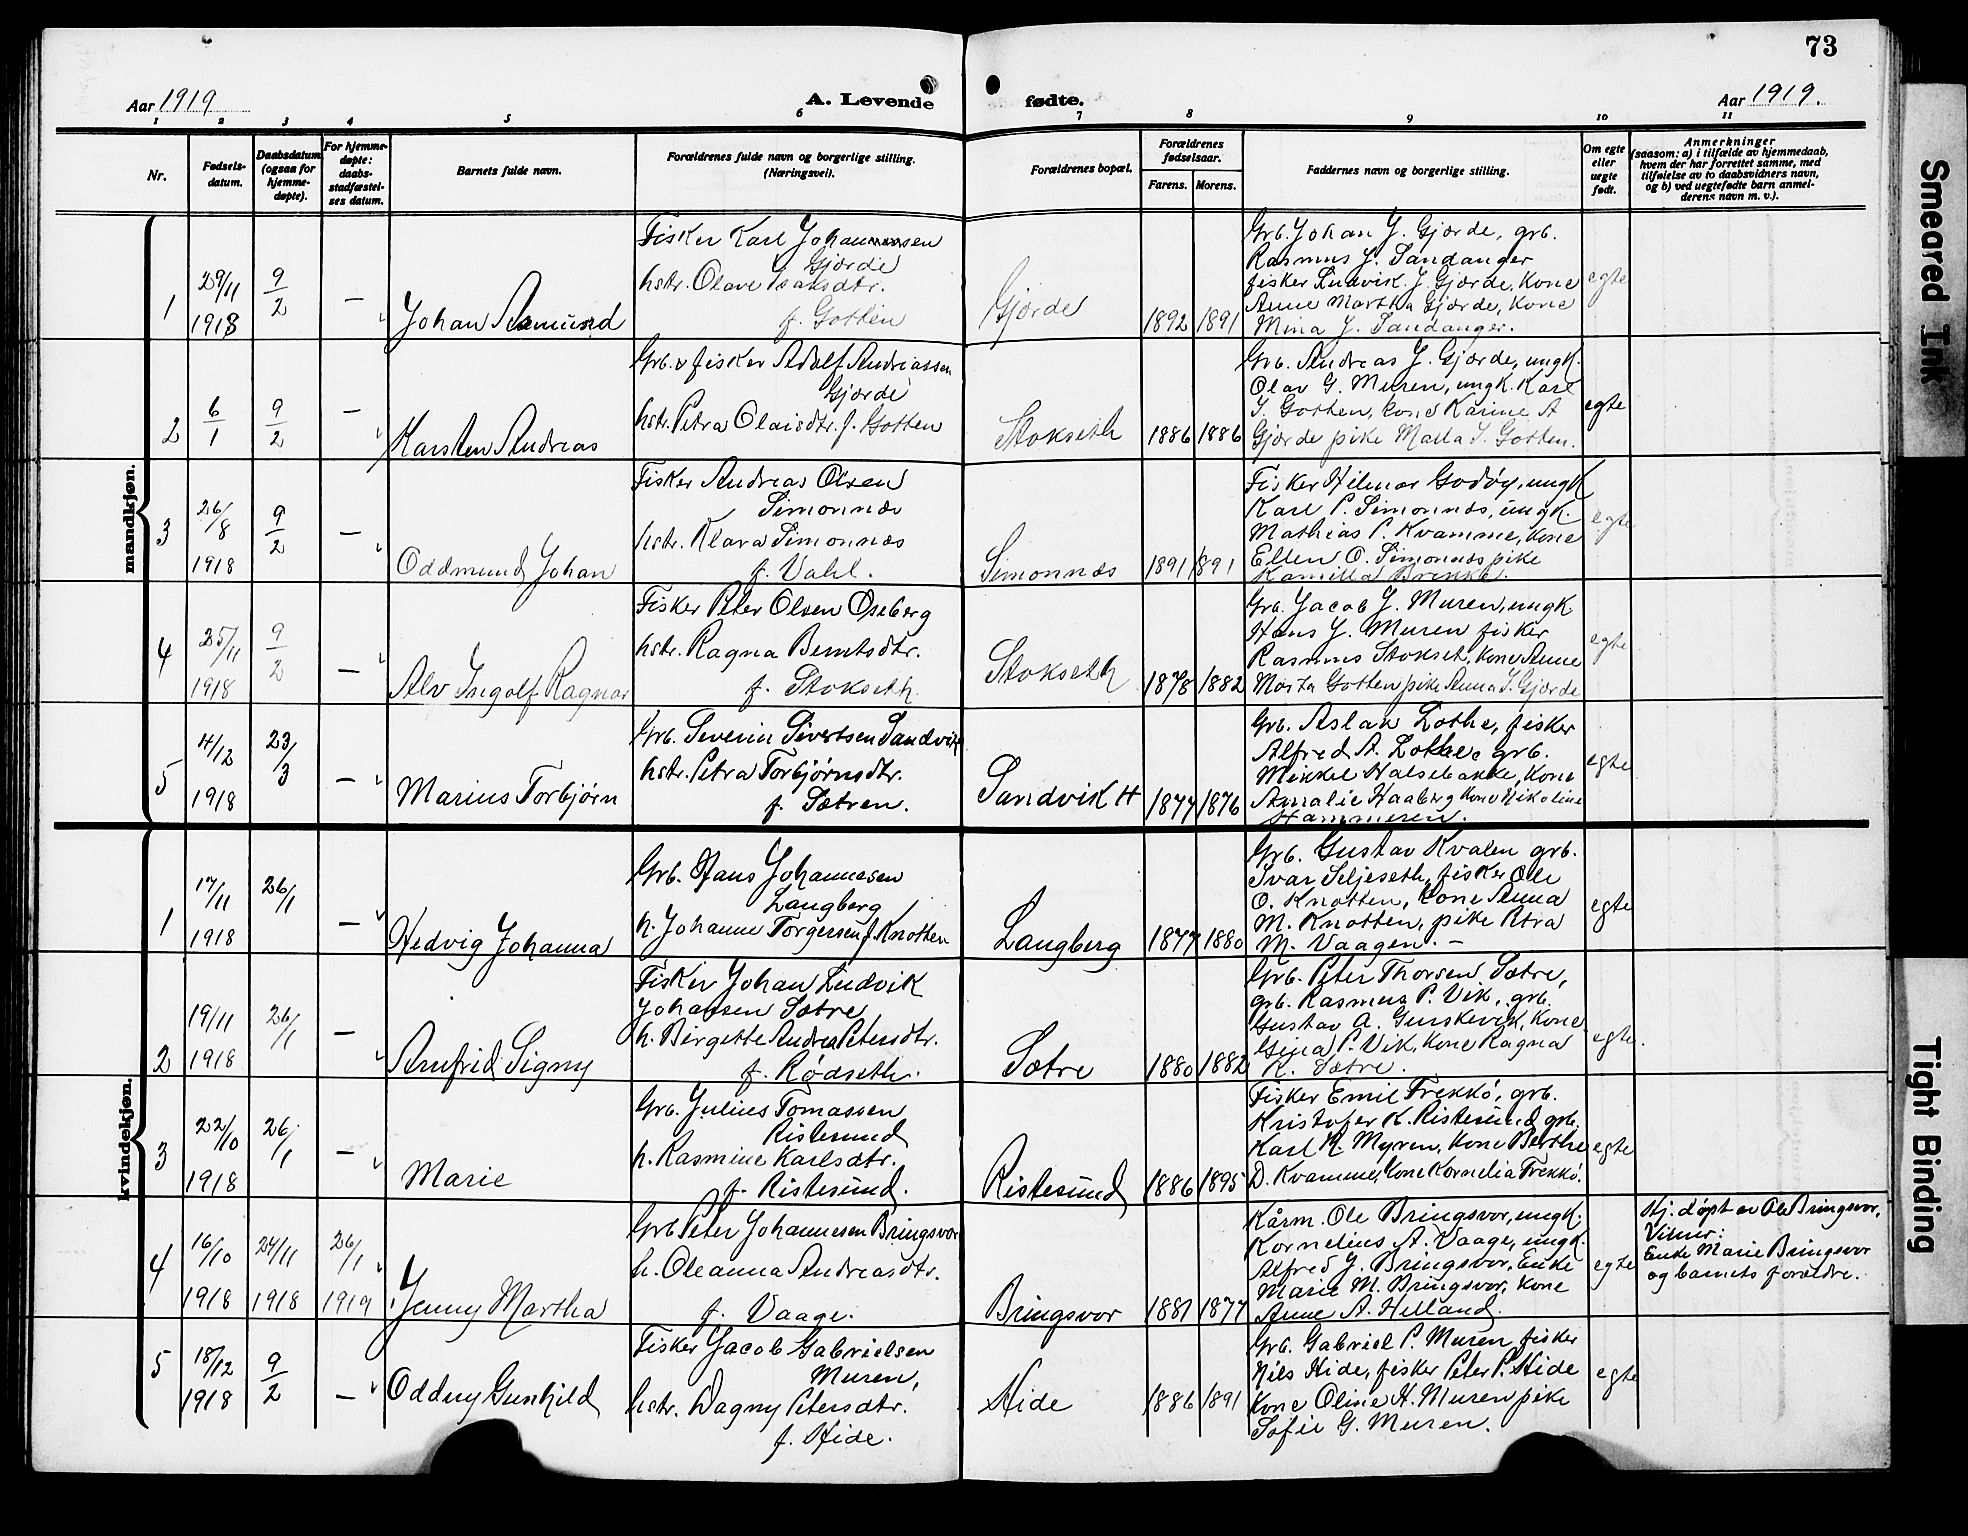 73
Aar 1919
A. Levende
fødte.
Aar 1919.
1 2 3 4 5 6 7 8 9 10 11
Nr.
Fødsels-
datum.
Daabsdatum
(ogsaa for
hjemme-
døpte).
For hjemme-
døpte:
daabs-
stadfæstel-
ses datum.
Barnets fulde navn.
Forældrenes fulde navn og borgerlige stilling.
(Næringsvei).
Forældrenes bopæl.
Forældrenes
fødselsaar.
Farens. Morens.
Faddernes navn og borgerlige stilling.
Om egte
eller
uegte
født.
Anmerkninger
(saasom: a) i tilfælde av hjemmedaab,
hvem der har forrettet samme, med
tilføielse av to daabsvidners navn,
og b) ved uegtefødte barn anmel-
derens navn m. v.).
mandkjøn.
1
29/11
1918
9/2
—
Johan Asmund
Fisker Karl Johannessen
Gjørde
hstr. Olave Isaksdtr.
f. Gotten
Gjørde
1892 1891
Grb. Johan J. Gjørde, grb.
Rasmus J. Sandanger
fisker Ludvik J. Gjørde, kone
Anne Martha Gjørde, kone
Mina J. Sandanger.
egte
2
6/1
9/2
—
Karsten Andreas
Grb. & fisker Adolf Andreassen
Gjørde
hstr. Petra Olaisdtr. f. Gotten
Stokseth
1886 1886
Grb. Andreas J. Gjørde, ungk.
Olav G. Muren, ungk. Karl
I. Gotten, kone Karine A
Gjørde pike Marta I. Gotten.
egte
3
26/8
1918
9/2
—
Oddmund Johan
Fisker Andreas Olsen
Simonnes
hstr. Klara Simonnes
f. Vahl.
Simonnes
1891 1891
Fisker Hilmar Godøy, ungk
Karl P. Simonnes, ungk.
Mathias P. Kvamme, kone
Ellen O. Simonnes pike
Kamilla Brekke.
egte
4
25/11
1918
9/2
—
Alv Ingolf Ragnar
Fisker Peter Olsen Oseberg
hstr. Ragna Berntsdtr.
f. Stokseth.
Stokseth
1878 1882
Grb. Jacob J. Muren, ungk
Hans J. Muren fisker
Rasmus Stokset, kone Anne
Marta Gotten pike Anna I. Gjørde
egte
5
4/12
1918
23/3
—
Marius Torbjørn
Grb. Severin Sivertsen Sandvik
hstr. Petra Torbjørnsdtr.
f. Sætren.
Sandvik H
1877 1876
Grb. Aslak Lothe, fisker
Alfred A. Lothe, grb.
Mikkel Halsebakke, kone
Amalie Haaberg kone Nikoline
Hammeren.
egte
kvindekjøn.
1
17/11
1918
26/1
—
Hedvig Johanna
Grb. Hans Johannesen
Langberg
h. Johanne Torgersen f. Knotten
Langberg
1877 1880
Grb. Gustav Kvalen grb.
Ivar Seljeseth, fisker Ole
O. Knotten, kone Anna
M. Knotten, pike Petra
M. Vaagen. —
egte
2
19/11
1918
26/1
—
Arnfrid Signy
Fisker Johan Ludvik
Johansen Sætre
h. Birgette Andrea Petersdtr.
f. Rødseth.
Sætre
1880 1882
Grb. Peter Thorsen Sætre,
grb. Rasmus P. Vik, grb.
Gustav A. Gurskevik, kone
Gina P. Vik, kone Ragna
R. Sætre.
egte.
3
22/10
1918
26/1
—
Marie
Grb. Julius Tomassen
Ristesund
h. Rasmine Karlsdtr.
f. Ristesund.
Ristesund
1886 1895
Fisker Emil Frekkø, grb.
Kristofer K. Ristesund grb.
Karl R. Myren, kone Berthe
D. Kvamme, kone Kornelia Frekkø.
egte
4
16/10
1918
24/11
1918
26/1
1919
Jenny Martha
Grb Peter Johannesen Bringsvor
h. Oleanna Andreasdtr.
f. Vaage.
Bringsvor
1881 1877
Kårm. Ole Bringsvor, ungk.
Kornelius A. Vaage, ungk.
Alfred J. Bringsvor, Enke
Marie M. Bringsvor, kone
Anne A. Helland.
egte
Hj. døpt av Ole Bringsvor,
Vitner:
Enke Marie Bringsvor
og barnets forældre.
5
18/12
1918
9/2
—
Oddny Gunhild
Fisker Jacob Gabrielsen
Muren,
hstr. Dagny Petersdtr.
f. Hide.
Hide
1886 1891
Grb. Gabriel P. Muren fisker
Nils Hide, fisker Peter P. Hide
kone Oline H. Muren pike
Sofie G. Muren.
egte
Smeared Ink
Tight Binding